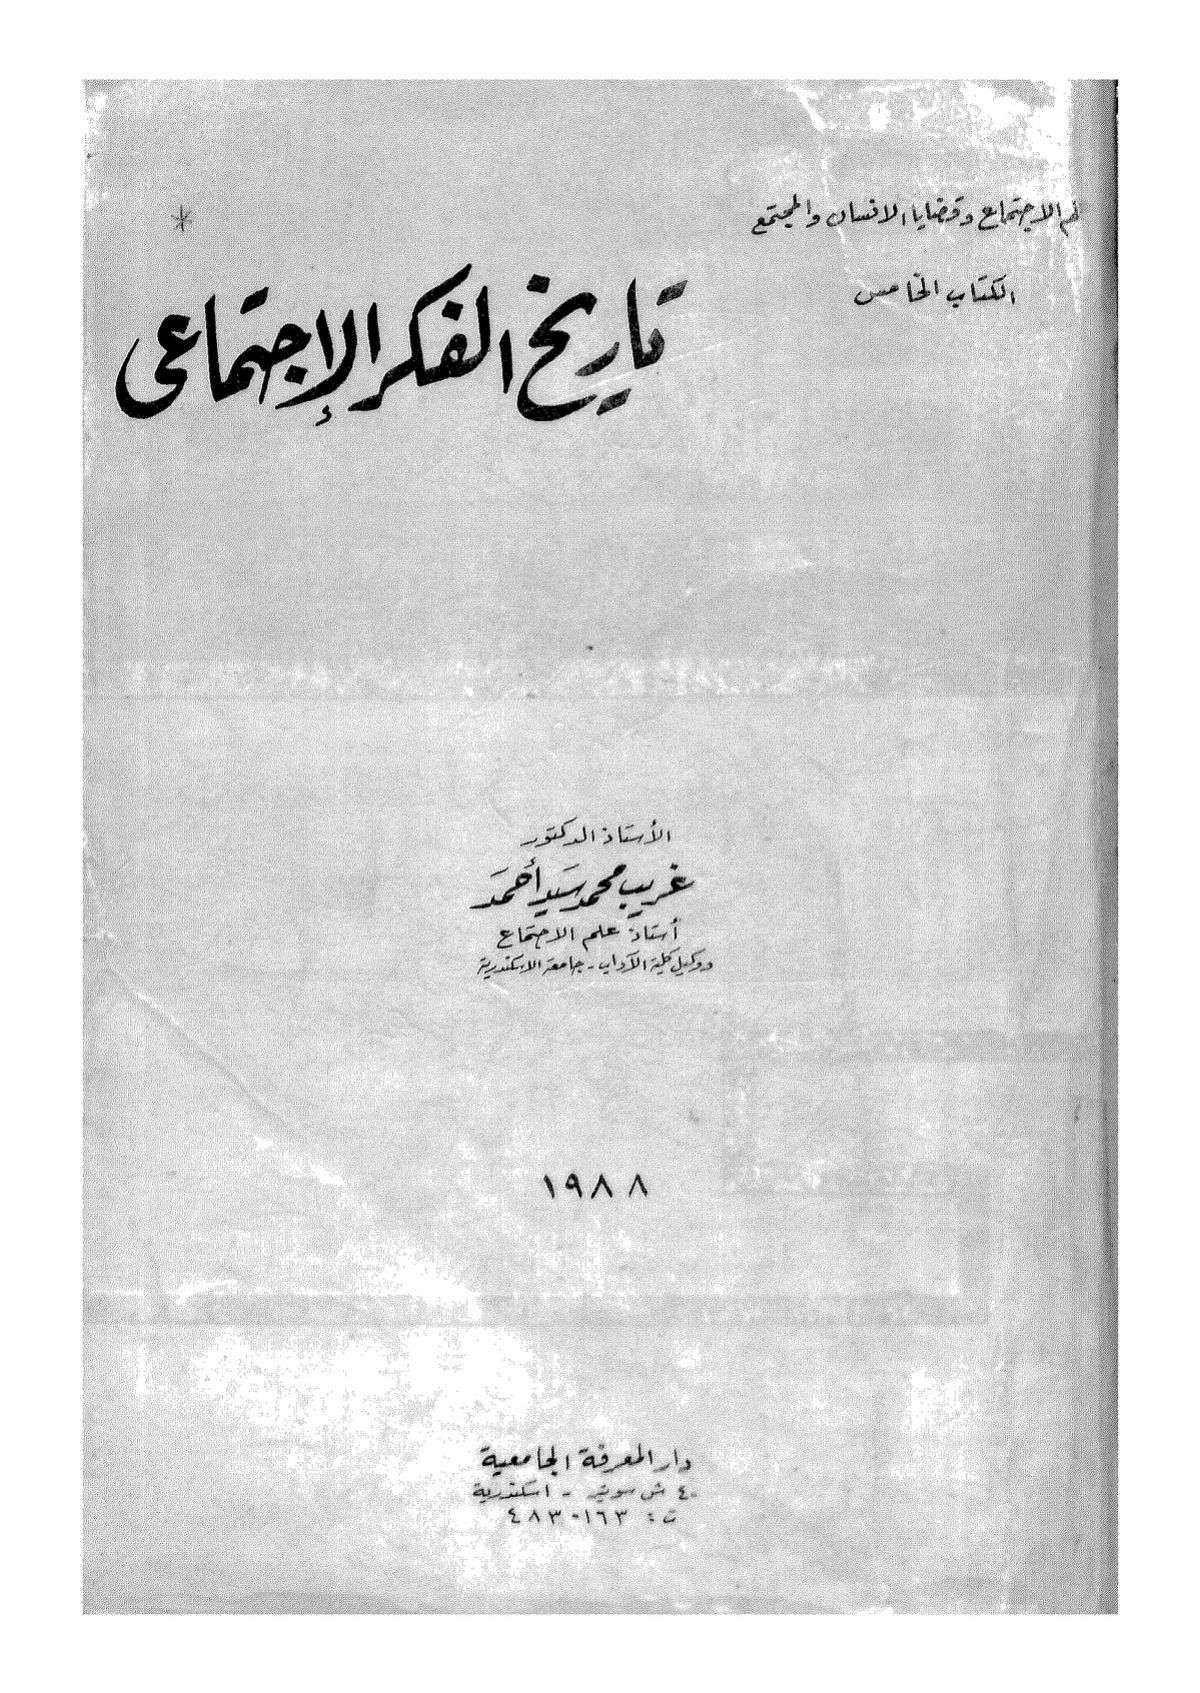 لم الاجتماع وقضايا الانسان والمجتمع
الكتاب الخامس
*
تاريخ الفكر الإجتماعى
الأستاذ الدكتور
غريب محمد سيد أحمد
أستاذ علم الاجتماع
ووكيل كلية الآداب - جامعة الاسكندرية
١٩٨٨
دار المعرفة الجامعية
٤٠ ش سوتير - اسكندرية
ت : ٤٨٣٠١٦٣